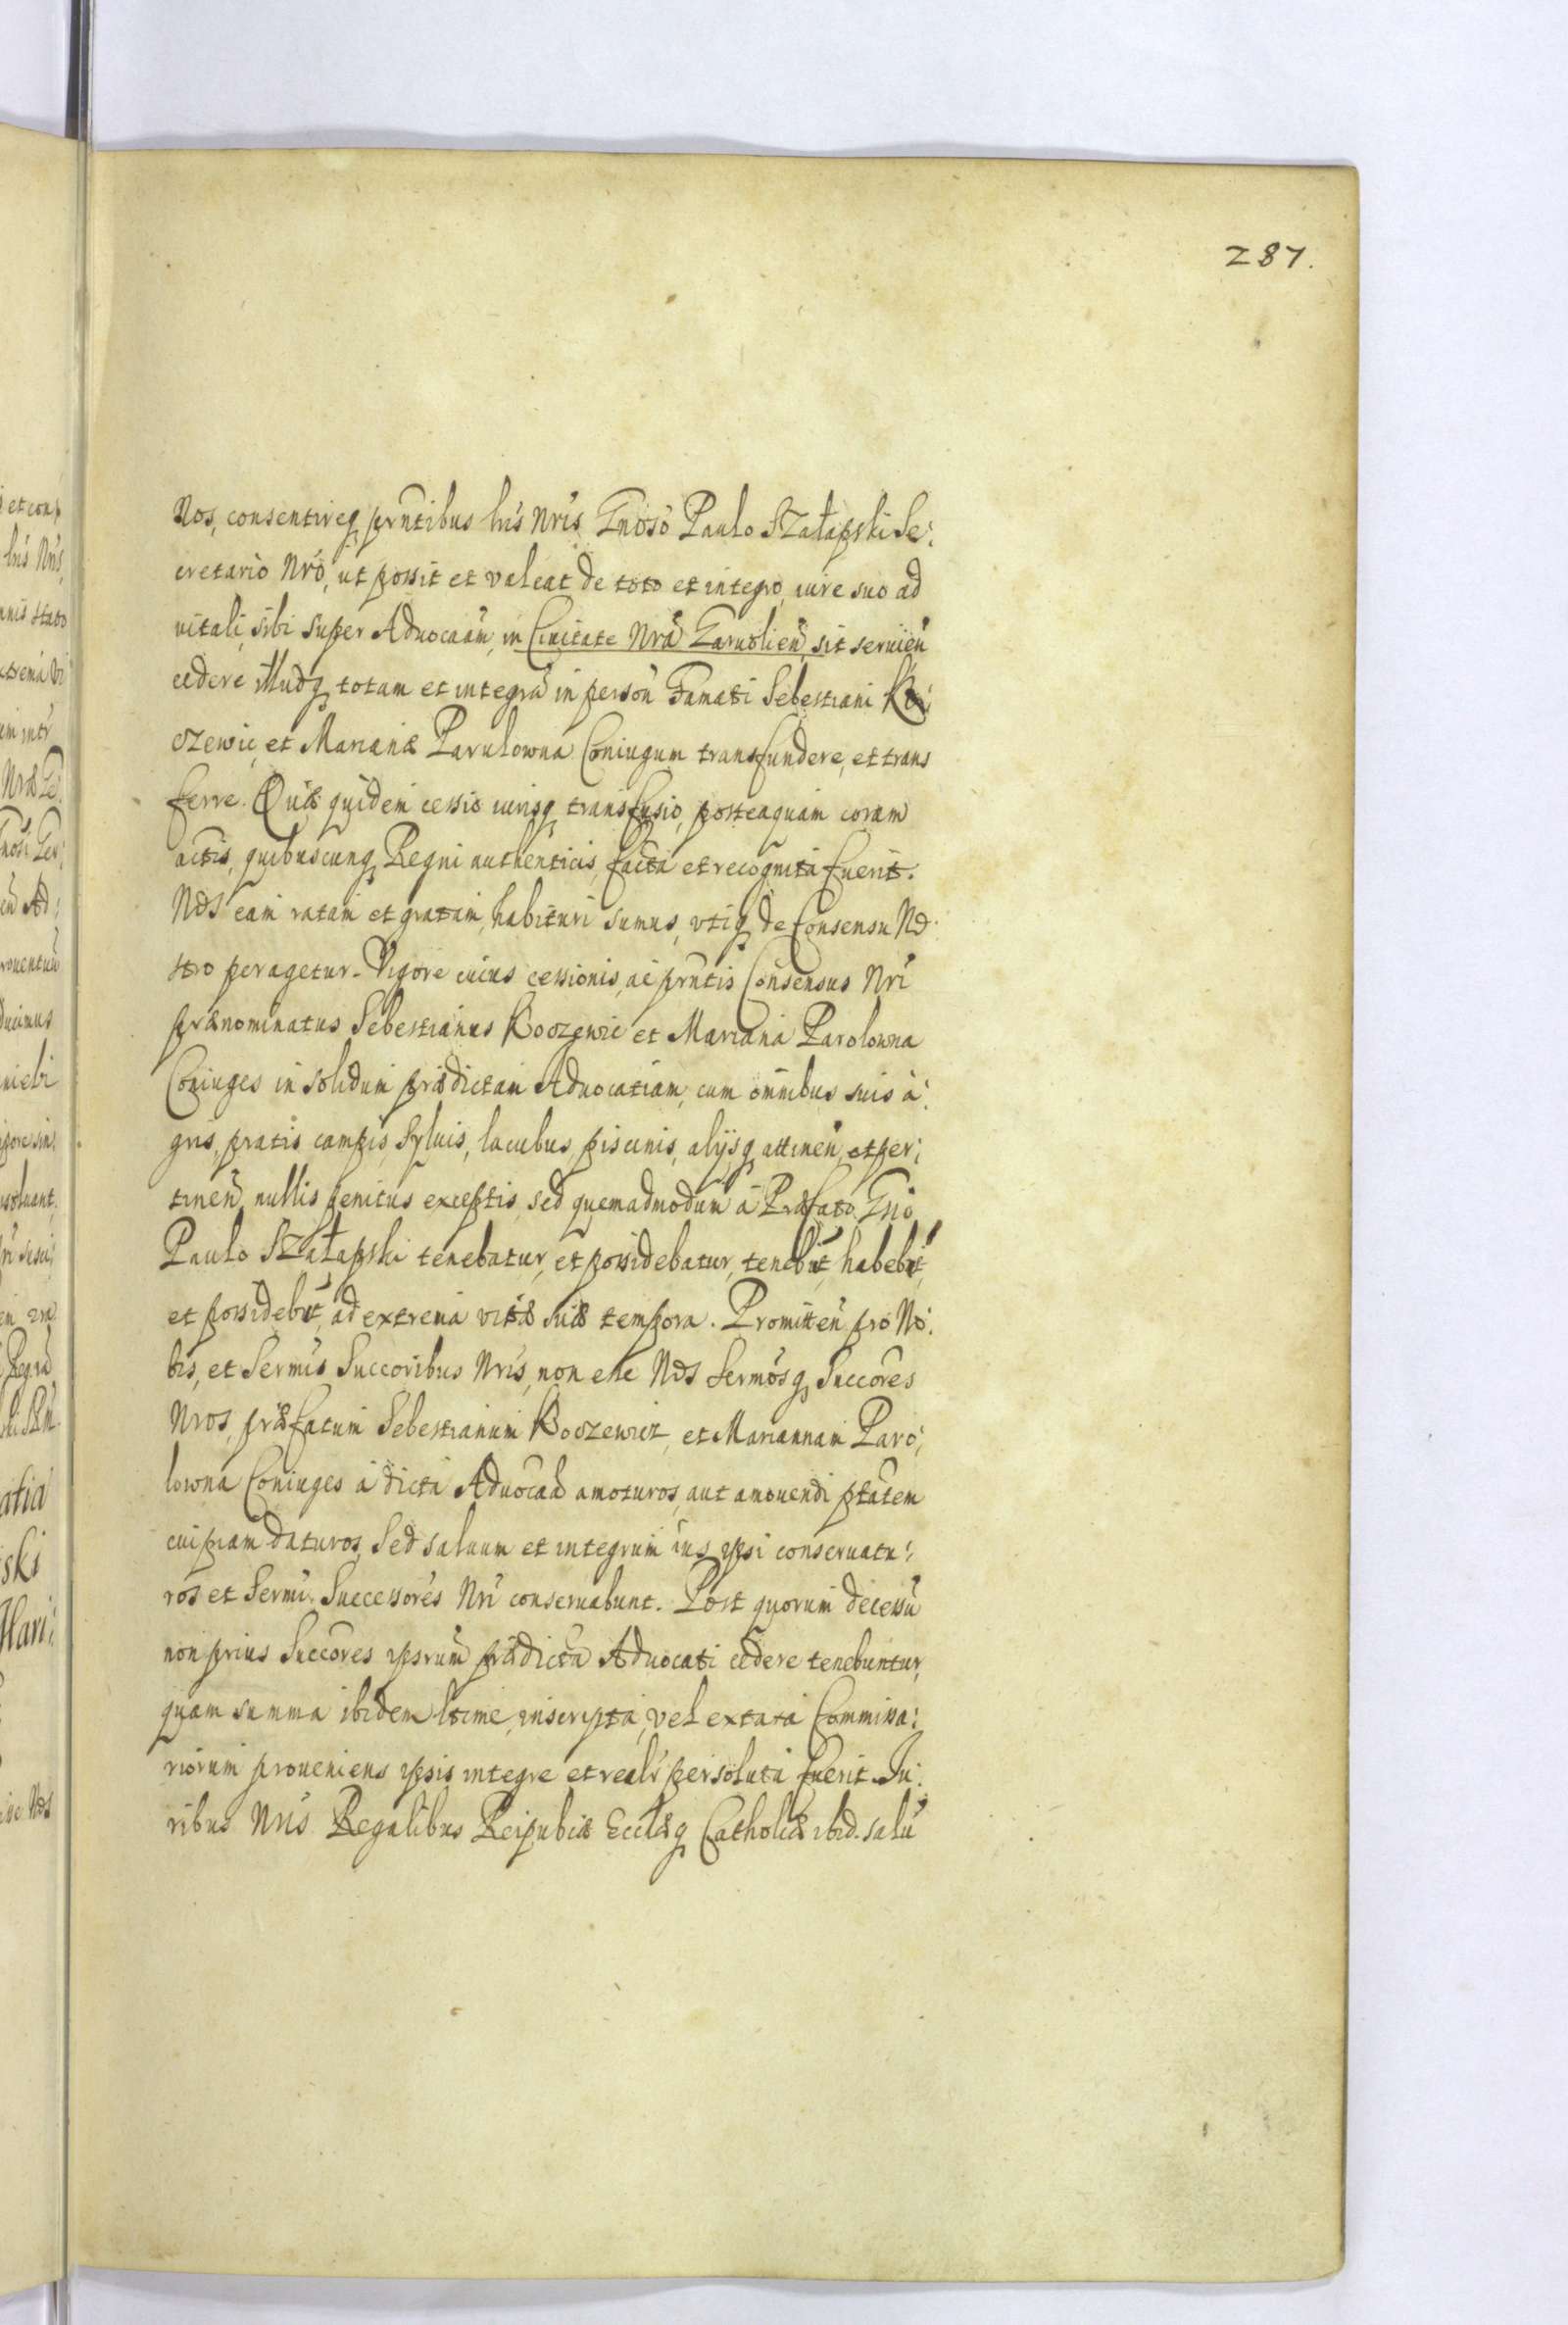 287.
Nos, consentireq prntibus lris Nris Gnoso Paulo Szałapski Se:
cretario Nro, ut possit et valeat de toto et integro, iure suo ad
vitali, sibi super Aduocaam, in Ciuitate Nra Garuolien, sit seruien
cedere illudq totam et integra in person Famati Sebestiani Ko:
czewic, et Marianæ Parulowna Coniugum transfundere, et trans
ferre. Quæ quidem cessio iurisq transfusio, posteaquam coram
actis, quibuscunq Regni authenticis, facta et recognita fuerit.
Nos eam ratam et gratam, habituri sumus, vtiq de Consensu No
stro peragetur. Vigore cuius cessionis, ac prntis Consensus Nri
prænominatus Sebestianus Koczewic et Mariana Parolowna
Coniuges in solidum prædictam Aduocatiam, cum omnibus suis a:
gris, pratis campis, syluis, lacubus, piscinis, alijsq attinen, et per:
tinen nullis penitus exceptis, sed quemadmodum a Præfato Gno
Paulo Szałapski tenebatur, et possidebatur, tenebit, habebit,
et possidebit, ad extrema vitæ suæ tempora. Promitten pro No:
bis, et Sermis Succoribus Nris, non esse Nos Sermosq Succores
Nros, præfatum Sebestianum Koczewicz, et Mariannam Paro:
lowna Coniuges a dicta Aduocaa amoturos, aut amouendi ptatem
cuipiam daturos, Sed saluum et integrum ius ipsi conseruatu:
ros et Sermi Successores Nri conseruabunt. Post quorum decessu
non prius Succores ipsrum prædicta Aduocati cedere tenebuntur,
quam summa ibidem ltime, inscripta, vel extaxa Commissa:
riorum proueniens ipsis integre et realr persoluta fuerit. Iu:
ribus Nris Regalibus Reipubcæ Ecclæq Catholicæ ibid. saluis